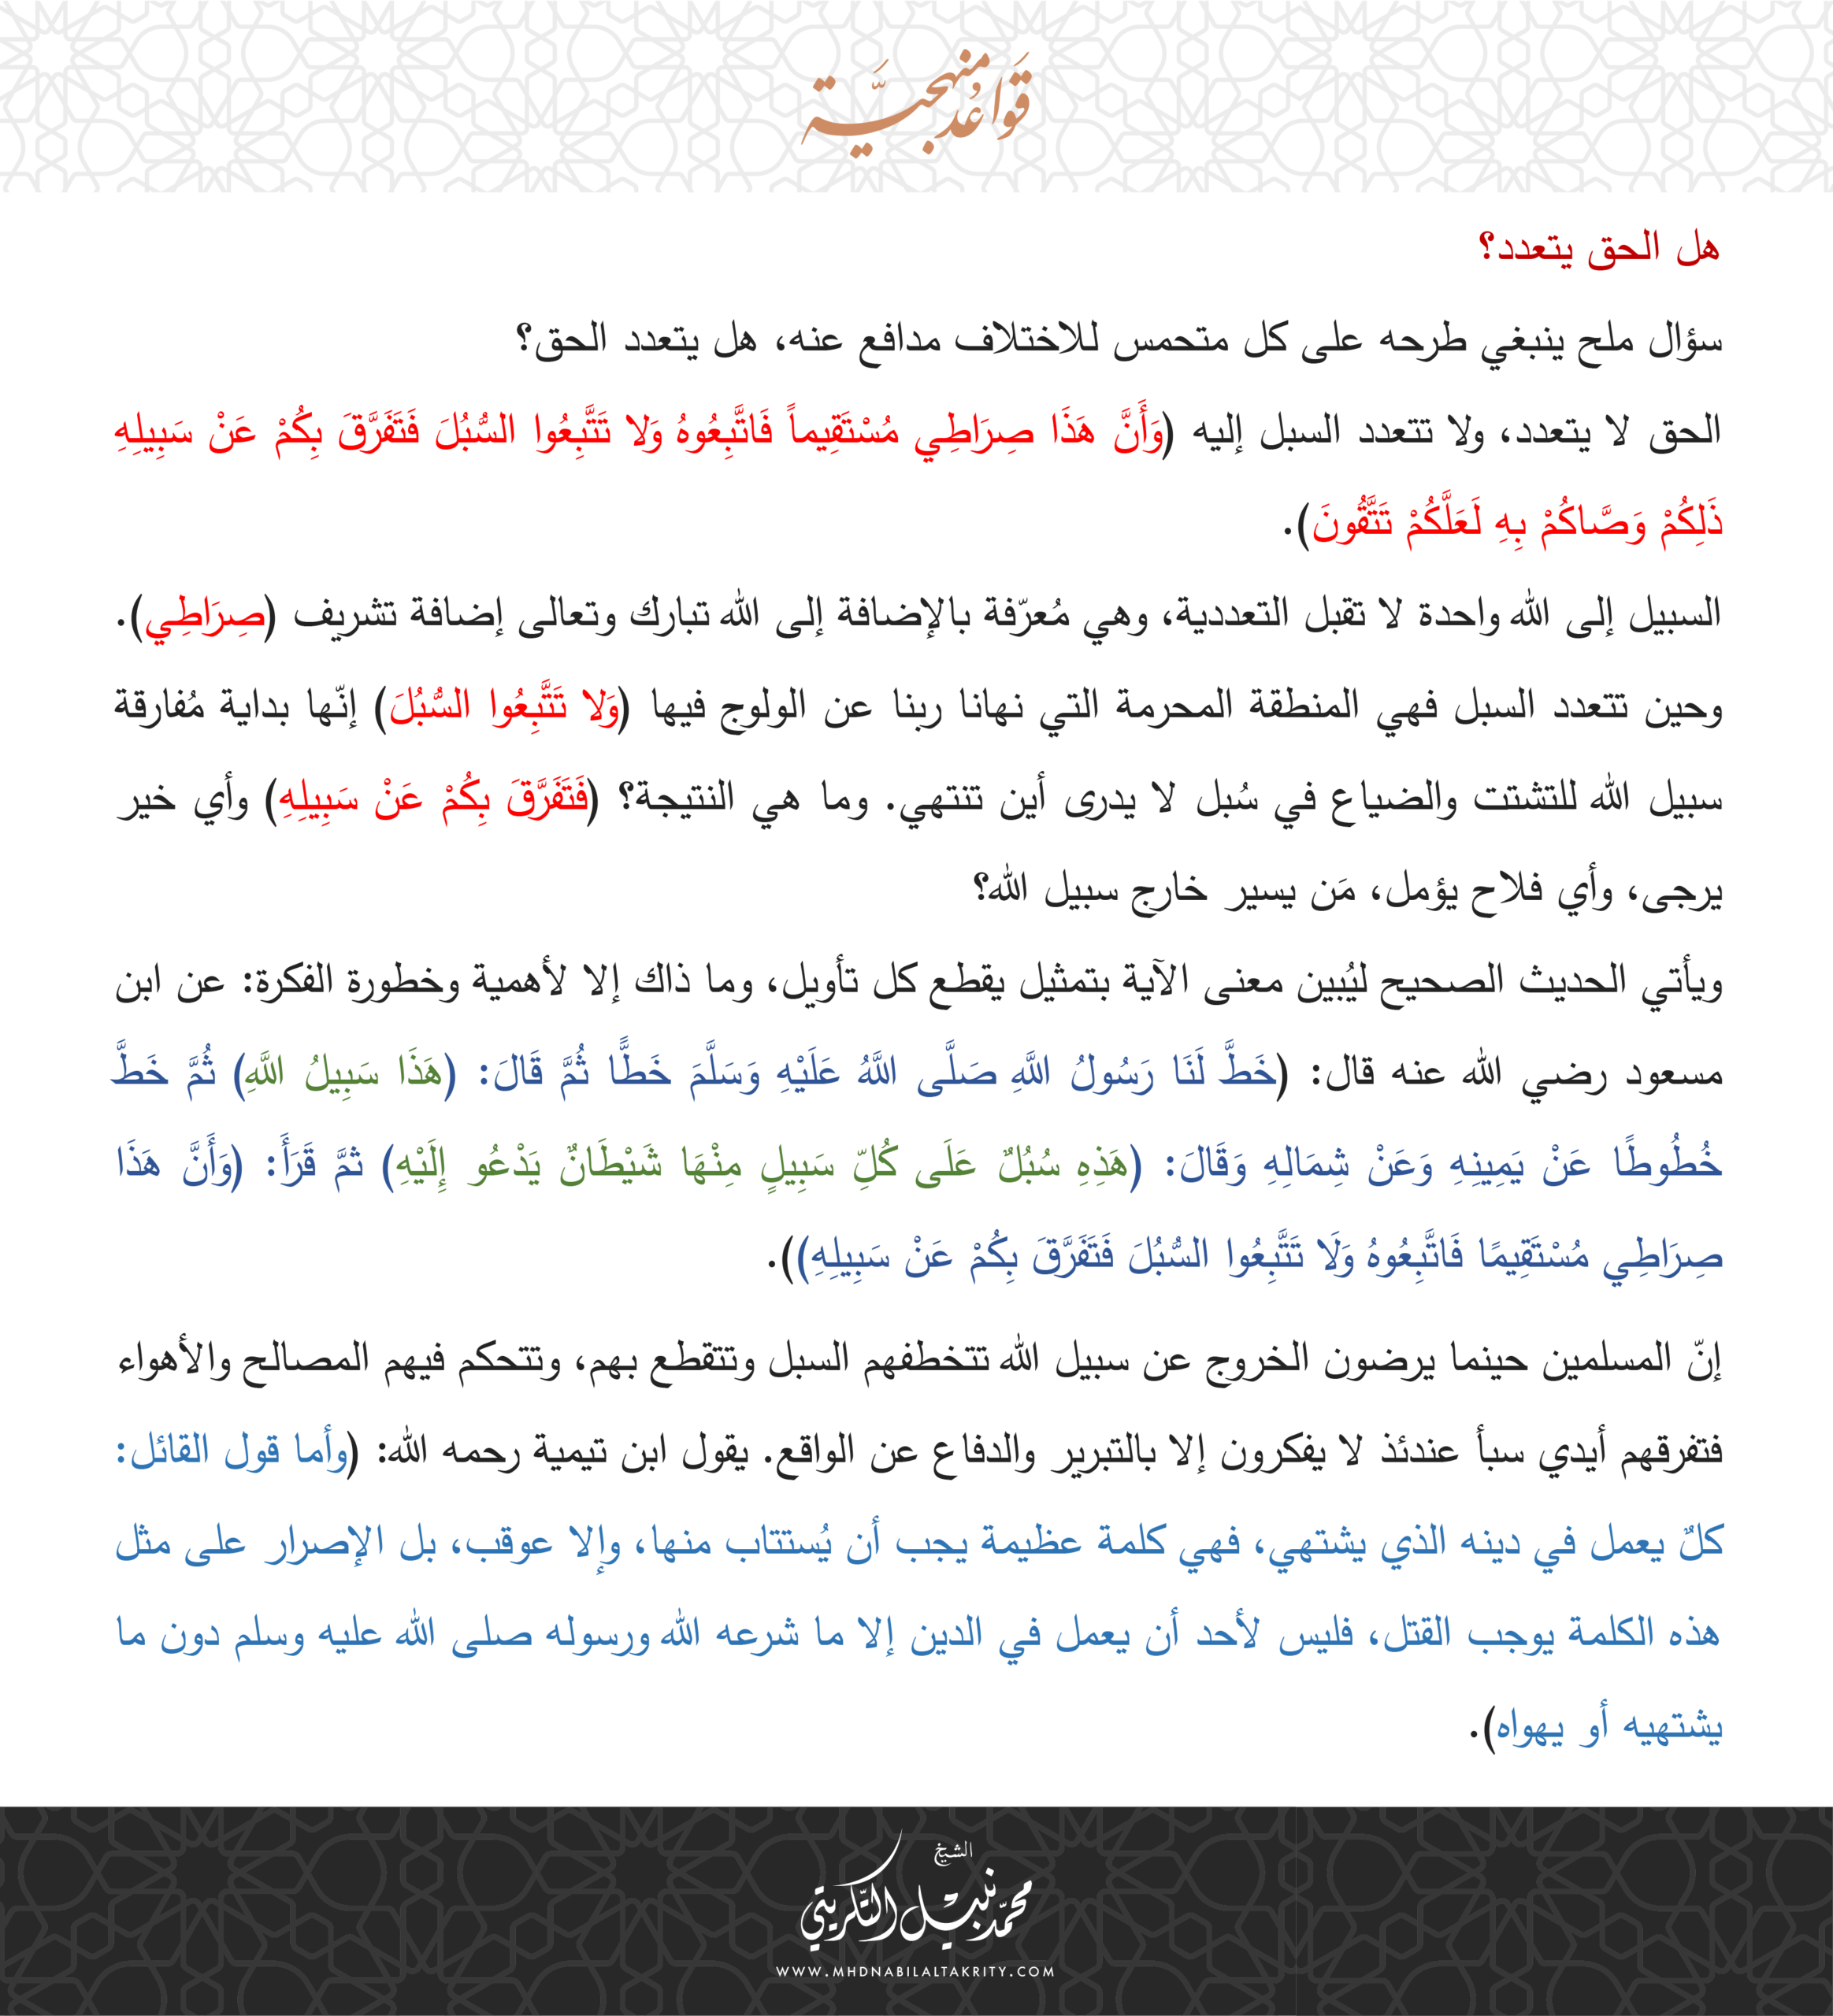 قَوَاعِدُ منهجيَّة
هل الحق يتعدد؟
سؤال ملح ينبغي طرحه على كل متحمس للاختلاف مدافع عنه، هل يتعدد الحق؟
الحق لا يتعدد، ولا تتعدد السبل إليه (وَأَنَّ هَذَا صِرَاطِي مُسْتَقِيماً فَاتَّبِعُوهُ وَلا تَتَّبِعُوا السُّبُلَ فَتَفَرَّقَ بِكُمْ عَنْ سَبِيلِهِ
ذَلِكُمْ وَصَّاكُمْ بِهِ لَعَلَّكُمْ تَتَّقُونَ).
السبيل إلى الله واحدة لا تقبل التعددية، وهي مُعرّفة بالإضافة إلى الله تبارك وتعالى إضافة تشريف (صِرَاطِي).
وحين تتعدد السبل فهي المنطقة المحرمة التي نهانا ربنا عن الولوج فيها (وَلا تَتَّبِعُوا السُّبُلَ) إنّها بداية مُفارقة
سبيل الله للتشتت والضياع في سُبل لا يدرى أين تنتهي. وما هي النتيجة؟ (فَتَفَرَّقَ بِكُمْ عَنْ سَبِيلِهِ) وأي خير
يرجى، وأي فلاح يؤمل، مَن يسير خارج سبيل الله؟
ويأتي الحديث الصحيح ليُبين معنى الآية بتمثيل يقطع كل تأويل، وما ذاك إلا لأهمية وخطورة الفكرة: عن ابن
مسعود رضي الله عنه قال: (خَطَّ لَنَا رَسُولُ اللَّهِ صَلَّى اللَّهُ عَلَيْهِ وَسَلَّمَ خَطًّا ثُمَّ قَالَ: (هَذَا سَبِيلُ اللَّهِ) ثُمَّ خَطَّ
خُطُوطًا عَنْ يَمِينِهِ وَعَنْ شِمَالِهِ وَقَالَ: (هَذِهِ سُبُلٌ عَلَى كُلِّ سَبِيلٍ مِنْهَا شَيْطَانٌ يَدْعُو إِلَيْهِ) ثمَّ قَرَأَ: (وَأَنَّ هَذَا
صِرَاطِي مُسْتَقِيمًا فَاتَّبِعُوهُ وَلَا تَتَّبِعُوا السُّبُلَ فَتَفَرَّقَ بِكُمْ عَنْ سَبِيلِهِ)).
إنّ المسلمين حينما يرضون الخروج عن سبيل الله تتخطفهم السبل وتتقطع بهم، وتتحكم فيهم المصالح والأهواء
فتفرقهم أيدي سبأ عندئذ لا يفكرون إلا بالتبرير والدفاع عن الواقع. يقول ابن تيمية رحمه الله: (وأما قول القائل:
كلٌ يعمل في دينه الذي يشتهي، فهي كلمة عظيمة يجب أن يُستتاب منها، وإلا عوقب، بل الإصرار على مثل
هذه الكلمة يوجب القتل، فليس لأحد أن يعمل في الدين إلا ما شرعه الله ورسوله صلى الله عليه وسلم دون ما
يشتهيه أو يهواه).
الشيخ
محمّد نبيل التّكريتي
WWW.MHDNABILALTAKRITY.COM